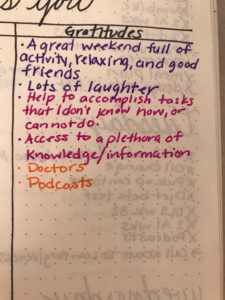 you
Gratitudes
· A great weekend full of
activity, relaxing, and good
friends
· Lots of laughter
· Help to accomplish tasks
that I don't know how, or
cannot do.
· Access to a plethora of
knowledge/information
· Doctors
· Podcasts